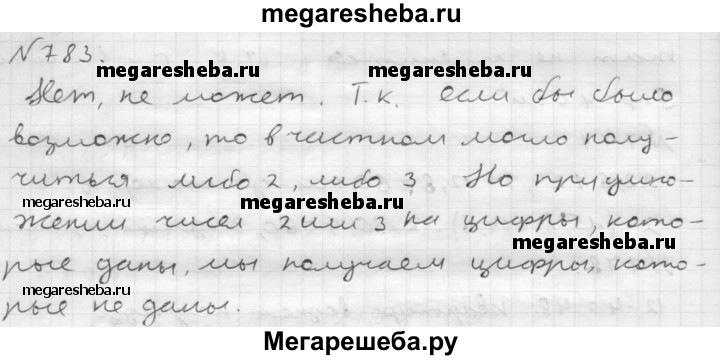 megaresheba.ru
N783.
megaresheba.ru megaresheba.ru
Нет, не может. Т.к. если бы было
возможно, то в частном могло полу-
читься либо 2, либо 3. Но при умно-
megaresheba.ru megaresheba.ru
жении чисел 2 или 3 на цифры, кото-
megaresheba.ru
рые даны, мы получаем цифры, кото-
megaresheba.ru
рые не даны.
Мегарешеба.ру